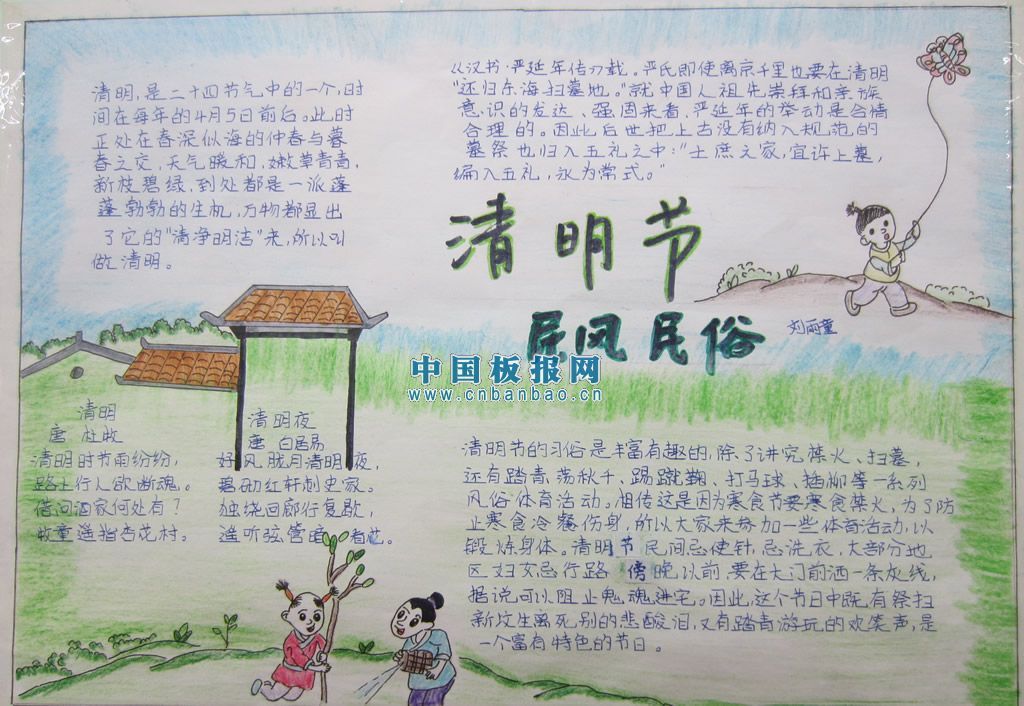 清明,是二十四节气中的一个,时
间在每年的4月5日前后。此时
正处在春深似海的仲春与暮
春之交,天气暖和,嫩草青青,
新枝碧绿,到处都是一派蓬
蓬勃勃的生机,万物都显出
了它的"清净明洁"来,所以叫
做清明。
从汉书·严延年传刀载。严氏即使离京千里也要在清明
"还归东海扫墓地。"就中国人祖先崇拜和亲族
意识的发达、强固来看、严延年的举动是合情
合理的。因此后世把上古没有纳入规范的
墓祭也归入五礼之中:"士庶之家,宜许上墓,
编入五礼,永为常式。"
清明节
民俗
刘雨童
中国板报网
www.cnbanbao.cn
清明
唐 杜牧
清明时节雨纷纷,
路上行人欲断魂。
借问酒家何处有?
牧童遥指杏花村。
清明夜
唐 白居易
好风胧月清明夜,
碧砌红轩刺史家。
独绕回廊行复歇,
遥听弦管暗看花。
清明节的习俗是丰富有趣的,除了讲究禁火、扫墓,
还有踏青、荡秋千、踢蹴鞠、打马球、插柳等一系列
风俗体育活动。相传这是因为寒食节要寒食禁火,为了防
止寒食冷餐伤身,所以大家来参加一些体育活动,以
锻炼身体。清明节民间忌使针,忌洗衣,大部分地
区妇女忌行路。傍晚以前,要在大门前洒一条灰线,
据说可以阻止鬼魂进宅。因此,这个节日中既有祭扫
新坟生离死别的悲酸泪,又有踏青游玩的欢笑声,是
一个富有特色的节日。